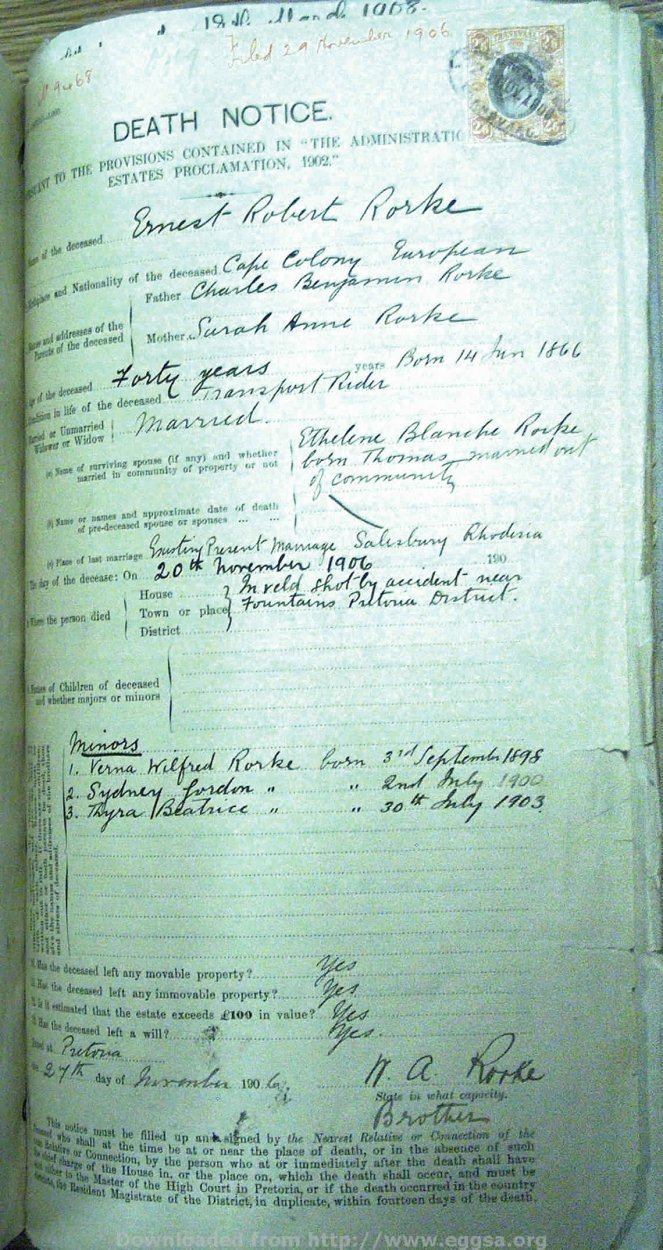 19th March 1908.
Filed 29 November 1906
DEATH NOTICE.
TO THE PROVISIONS CONTAINED IN "THE ADMINISTRATIO
ESTATES PROCLAMATION, 1902."
TRANSVAAL
of the deceased Ernest Robert Rorke
and Nationality of the deceased Cape Colony European
Names and addresses of the Parents of the deceased
Father Charles Benjamin Rorke
Mother Sarah Anne Rorke
Age of the deceased Forty years years Born 14 Jan 1866
Condition in life of the deceased Transport Rider
Married or Unmarried
Widower or Widow
Married.
(a) Name of surviving spouse (if any) and whether
married in community of property or not
Ethelene Blanche Rorke
born Thomas married out
of community
(b) Name or names and approximate date of death
of pre-deceased spouse or spouses ... ...
(c) Place of last marriage Existing Present Marriage Salesbury Rhodesia
The day of the decease: On 20th November 1906 190
Where the person died
House
Town or place
District
In veld shot by accident near
Fountains Pretoria District.
Names of Children of deceased
and whether majors or minors
Minors
1. Verna Wilfred Rorke born 3rd September 1898
2. Sydney Gordon " " 2nd July 1900
3. Thyra Beatrice " " 30th July 1903
and sisters of deceased.
Has the deceased left any movable property? Yes
Has the deceased left any immovable property? Yes
Is it estimated that the estate exceeds £100 in value? Yes
Has the deceased left a will? Yes.
Dated at Pretoria
the 27th day of November 190 6
W. A. Rorke
State in what capacity.
Brother
This notice must be filled up and signed by the Nearest Relative or Connection of the
who shall at the time be at or near the place of death, or in the absence of such
Relative or Connection, by the person who at or immediately after the death shall have
the chief charge of the House in, or the place on, which the death shall occur, and must be
either to the Master of the High Court in Pretoria, or if the death occurred in the country
the Resident Magistrate of the District, in duplicate, within fourteen days of the death.
Downloaded from http://www.eggsa.org